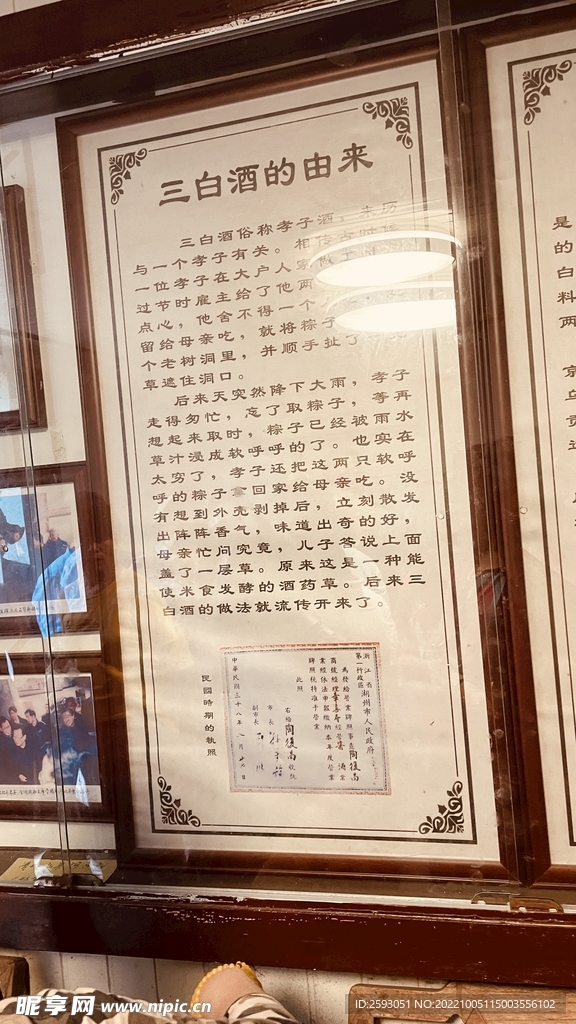 三白酒的由来
三白酒俗称孝子酒，来历
与一个孝子有关。相传古时
一位孝子在大户人家做工
过节时雇主给了他两
点心，他舍不得一个
留给母亲吃，就将粽子
个老树洞里，并顺手扯了
草遮住洞口。
后来天突然降下大雨，孝子
走得匆忙，忘了取粽子，等再
想起来取时，粽子已经被雨水
草汁浸成软呼呼的了。也实在
太穷了，孝子还把这两只软呼
呼的粽子拿回家给母亲吃。没
有想到外壳剥掉后，立刻散发
出阵阵香气，味道出奇的好，
母亲忙问究竟，儿子答说上面
盖了一层草。原来这是一种能
使米食发酵的酒药草。后来三
白酒的做法就流传开来了。
浙江省湖州市人民政府
此照
右给陶复高收执
市长
副市长
中华民国三十八年八月十九日
民國時期的執照
是
的
白
料
两
昵享网 www.nipic.cn
ID:2593051 NO:20221005115003556102